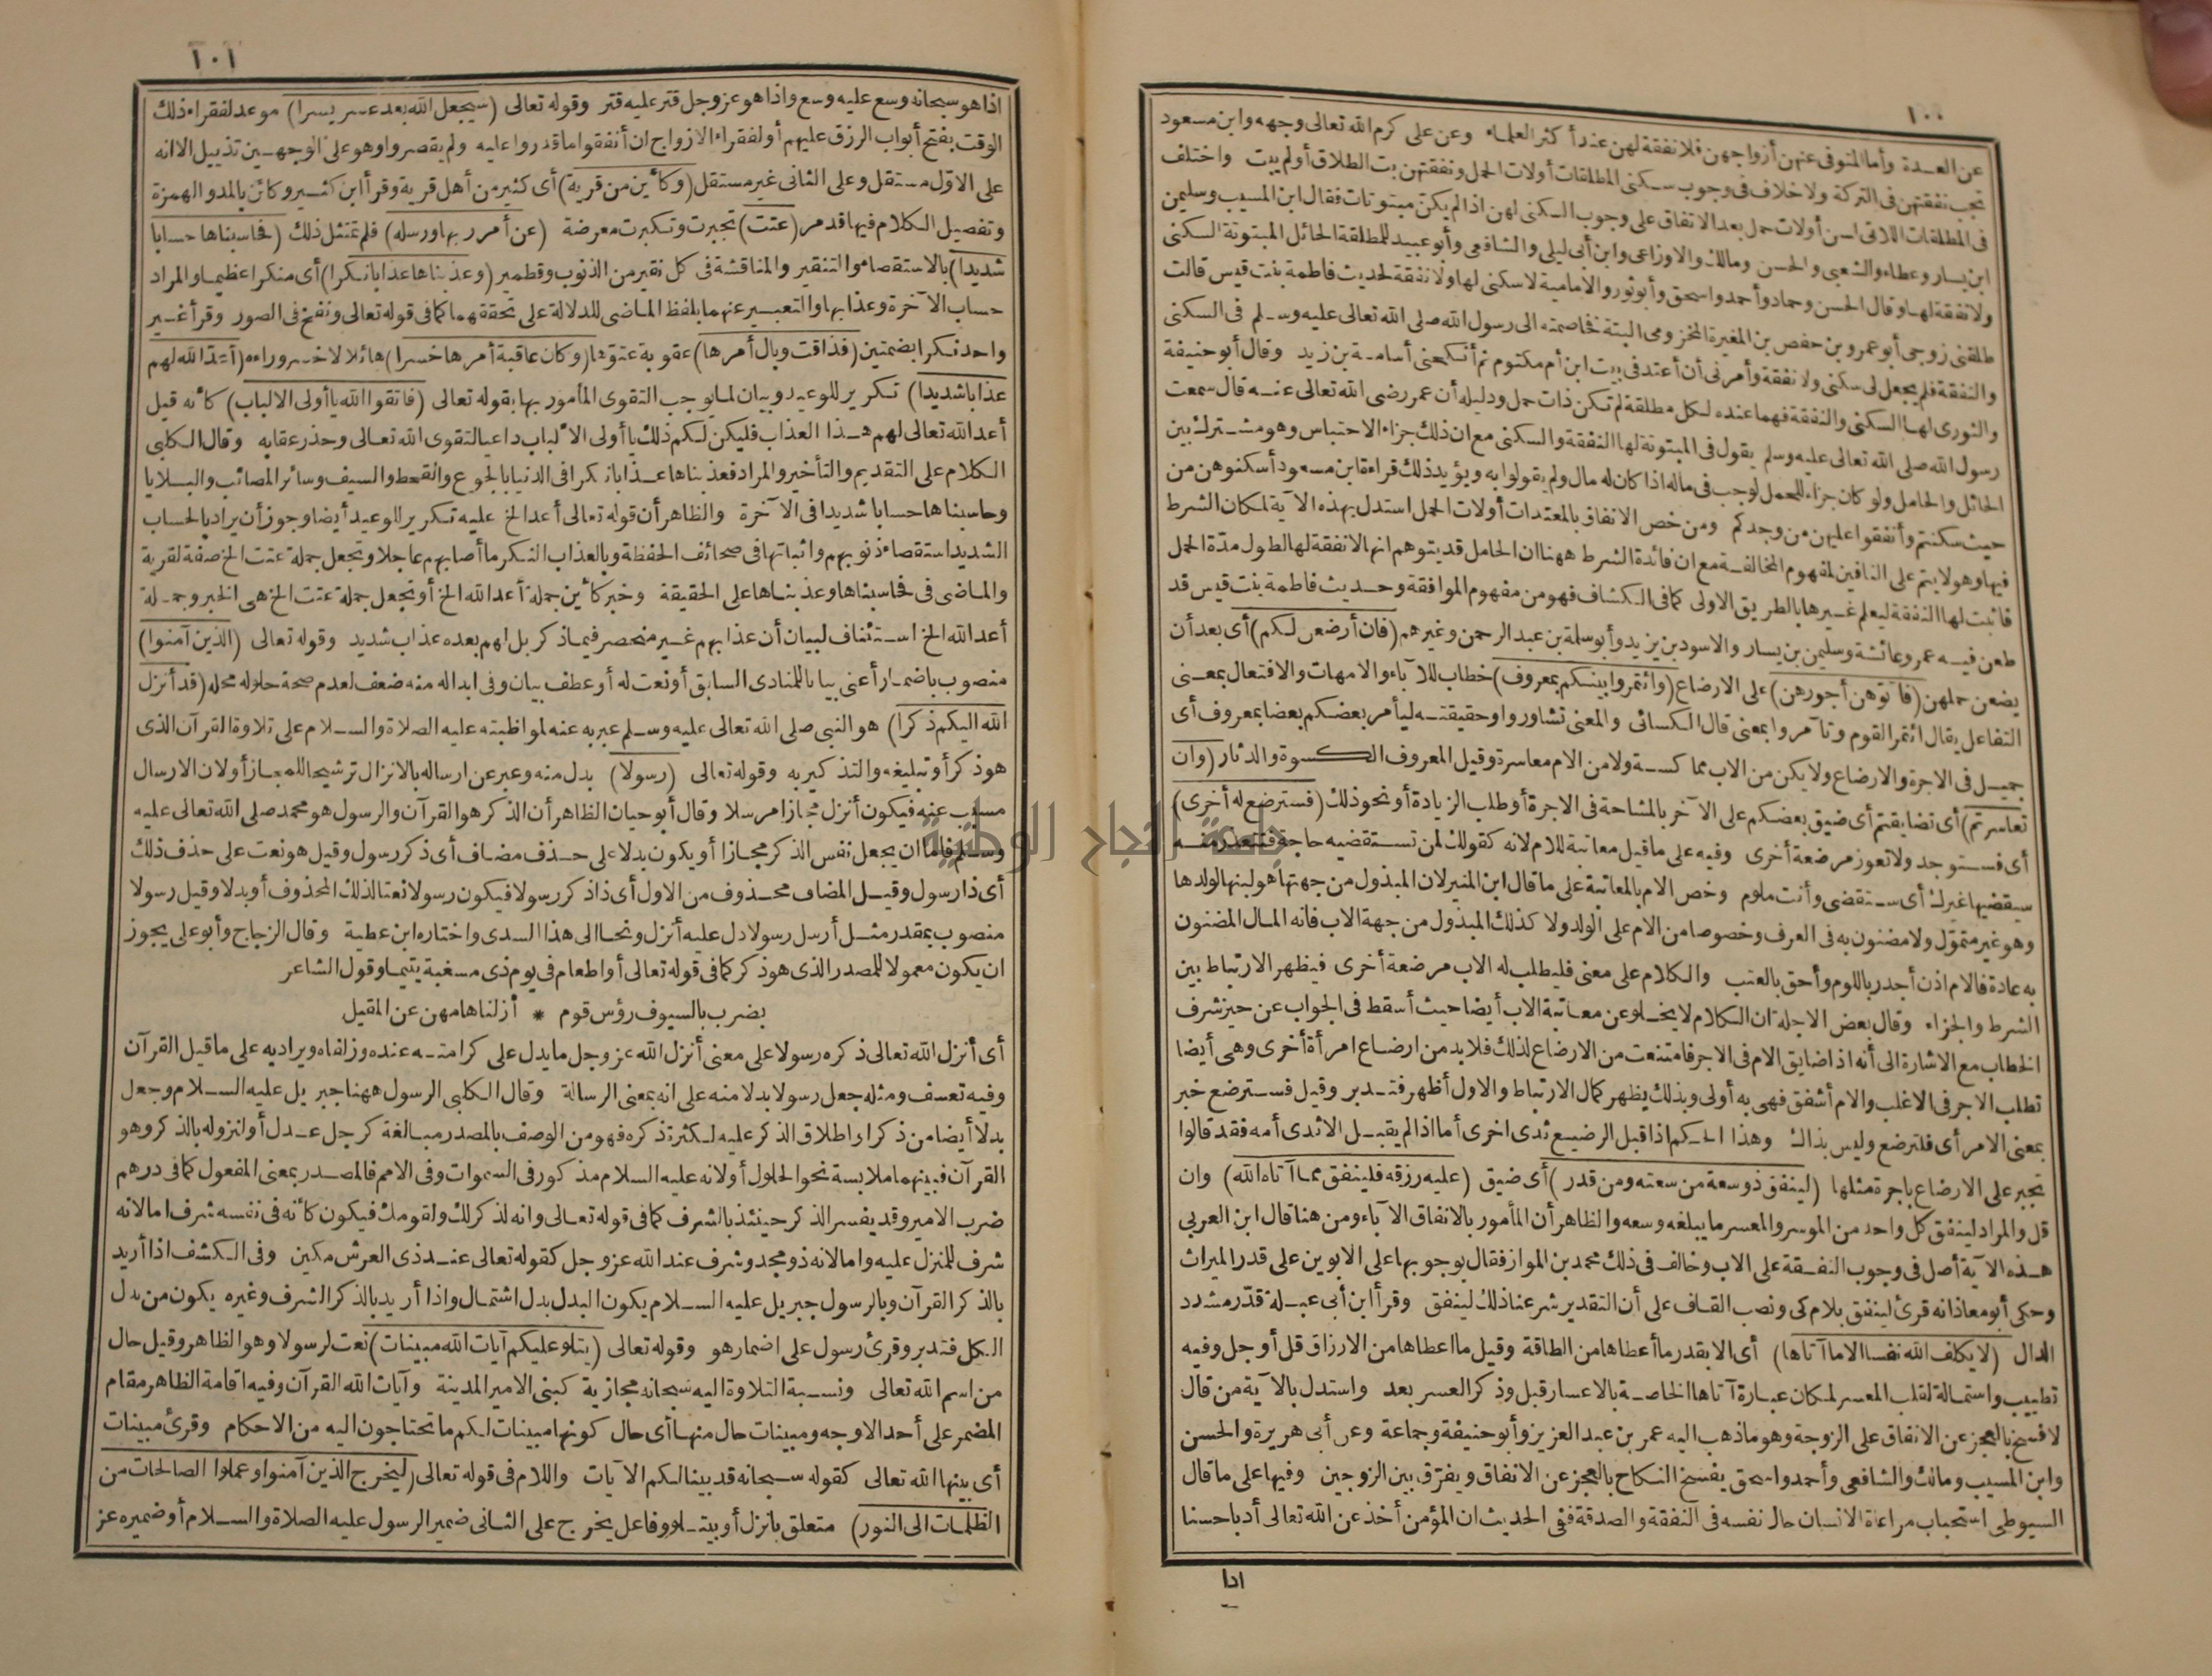 ١٠٠
عن العدة وأما المتوفى عنهن أزواجهن فلا نفقة لهن عند أكثر العلماء وعن على كرم الله تعالى وجهه وابن مسعود
تجب نفقتهن فى التركة ولا خلاف فى وجوب سكنى المطلقات أولات الحمل ونفقتهن بت الطلاق أو لم يبت واختلف
فى المطلقات اللاتى لسن أولات حمل بعد الاتفاق على وجوب السكنى لهن اذا لم يكن مبتوتات فقال ابن المسيب وسليمن
ابن يسار وعطاء والشعبى والحسن ومالك والاوزاعى وابن أبى ليلى والشافعى وأبو عبيد للمطلقة الحائل المبتوتة السكنى
ولا نفقة لها وقال الحسن وحماد وأحمد واسحق وأبو ثور والامامية لا سكنى لها ولا نفقة لحديث فاطمة بنت قيس قالت
طلقنى زوجى أبو عمرو بن حفص بن المغيرة المخزومى البتة فخاصمته الى رسول الله صلى الله تعالى عليه وسلم فى السكنى
والنفقة فلم يجعل لى سكنى ولا نفقة وأمرنى أن أعتد فى بيت ابن أم مكتوم ثم أنكحنى أسامة بن زيد وقال أبو حنيفة
والثورى لها السكنى والنفقة فهما عنده لكل مطلقة لم تكن ذات حمل ودليله أن عمر رضى الله تعالى عنه قال سمعت
رسول الله صلى الله تعالى عليه وسلم يقول فى المبتوتة لها النفقة والسكنى مع ان ذلك جزاء الاحتباس وهو مشترك بين
الحائل والحامل ولو كان جزاء للحمل لوجب فى ماله اذا كان له مال ولم يقولوا به ويؤيد ذلك قراءة ابن مسعود أسكنوهن من
حيث سكنتم وأنفقوا عليهن من وجدكم ومن خص الانفاق بالمعتدات أولات الحمل استدل بهذه الآية لمكان الشرط
فيها وهو لا يتم على النافين لمفهوم المخالفة مع ان فائدة الشرط ههنا ان الحامل قد يتوهم انها لا نفقة لها لطول مدة الحمل
فاثبت لها النفقة ليعلم غيرها بالطريق الاولى كما فى الكشاف فهو من مفهوم الموافقة وحديث فاطمة بنت قيس قد
طعن فيه عمر وعائشة وسليمن بن يسار والاسود بن يزيد وأبو سلمة بن عبد الرحمن وغيرهم (فان أرضعن لكم) أى بعد أن
يضعن حملهن (فآتوهن أجورهن) على الارضاع (وائتمروا بينكم بمعروف) خطاب للآباء والامهات والافتعال بمعنى
التفاعل يقال ائتمر القوم وتآمروا بمعنى قال الكسائى والمعنى تشاوروا وحقيقته ليأمر بعضكم بعضا بمعروف أى
جميل فى الاجرة والارضاع ولا يكن من الاب مماكسة ولا من الام معاسرة وقيل المعروف الكسوة والدثار (وان
تعاسرتم) أى تضايقتم أى ضيق بعضكم على الآخر بالمشاحة فى الاجرة أو طلب الزيادة أو نحو ذلك (فسترضع له أخرى)
أى فستوجد ولا تعوز مرضعة أخرى وفيه على ما قيل معاتبة للام لانه كقولك لمن تستقضيه حاجة فتتعذر منه
سيقضيها غيرك أى ستقضى وأنت ملوم وخص الام بالمعاتبة على ما قال ابن المنير لان المبذول من جهتها هو لبنها لولدها
وهو غير متموّل ولا مضنون به فى العرف وخصوصا من الام على الولد ولا كذلك المبذول من جهة الاب فانه المال المضنون
به عادة فالام اذن أجدر باللوم وأحق بالعتب والكلام على معنى فليطلب له الاب مرضعة أخرى فيظهر الارتباط بين
الشرط والجزاء وقال بعض الاجلة ان الكلام لا يخلو عن معاتبة الاب أيضا حيث أسقط فى الجواب عن حيز شرف
الخطاب مع الاشارة الى أنه اذا ضايق الام فى الاجر فامتنعت من الارضاع لذلك فلا بد من ارضاع امرأة أخرى وهى أيضا
تطلب الاجر فى الاغلب والام أشفق فهى به أولى وبذلك يظهر كمال الارتباط والاول أظهر فتدبر وقيل فسترضع خبر
بمعنى الامر أى فلترضع وليس بذاك وهذا الحكم اذا قبل الرضيع ثدى اخرى أما اذا لم يقبل الا ثدى أمه فقد قالوا
تجبر على الارضاع باجرة مثلها (لينفق ذو سعة من سعته ومن قدر) أى ضيق (عليه رزقه فلينفق مما آتاه الله) وان
قل والمراد لينفق كل واحد من الموسر والمعسر ما يبلغه وسعه والظاهر أن المأمور بالانفاق الآباء ومن هنا قال ابن العربى
هذه الآية أصل فى وجوب النفقة على الاب وخالف فى ذلك محمد بن المواز فقال بوجوبها على الابوين على قدر الميراث
وحكى أبو معاذ انه قرئ لينفق بلام كى ونصب القاف على أن التقدير شرعنا ذلك لينفق وقرأ ابن أبى عبلة قدّر مشدد
الدال (لا يكلف الله نفسا الا ما آتاها) أى الا بقدر ما أعطاها من الطاقة وقيل ما اعطاها من الارزاق قل أو جل وفيه
تطييب واستمالة لقلب المعسر لمكان عبارة آتاها الخاصة بالاعسار قبل وذكر العسر بعد واستدل بالآية من قال
لا فسخ بالعجز عن الانفاق على الزوجة وهو ما ذهب اليه عمر بن عبد العزيز وأبو حنيفة وجماعة وعن أبى هريرة والحسن
وابن المسيب ومالك والشافعى وأحمد واسحق يفسخ النكاح بالعجز عن الانفاق ويفرّق بين الزوجين وفيها على ما قال
السيوطى استحباب مراعاة الانسان حال نفسه فى النفقة والصدقة ففى الحديث ان المؤمن أخذ عن الله تعالى أدبا حسنا
اذا
١٠١
اذا هو سبحانه وسع عليه وسع واذا هو عز وجل قتر عليه قتر وقوله تعالى (سيجعل الله بعد عسر يسرا) موعد لفقراء ذلك
الوقت بفتح أبواب الرزق عليهم أو لفقراء الازواج ان أنفقوا ما قدروا عليه ولم يقصروا وهو على الوجهين تذييل الا انه
على الاوّل مستقل وعلى الثانى غير مستقل (وكأين من قرية) أى كثير من أهل قرية وقرأ ابن كثير وكائن بالمد والهمزة
وتفصيل الكلام فيها قد مر (عتت) تجبرت وتكبرت معرضة (عن أمر ربها ورسله) فلم تمتثل ذلك (فحاسبناها حسابا
شديدا) بالاستقصاء والتنقير والمناقشة فى كل نقير من الذنوب وقطمير (وعذبناها عذابا نكرا) أى منكرا عظيما والمراد
حساب الآخرة وعذابها والتعبير عنهما بلفظ الماضى للدلالة على تحققهما كما فى قوله تعالى ونفخ فى الصور وقرأ غير
واحد نكرا بضمتين (فذاقت وبال أمرها) عقوبة عتوّها (وكان عاقبة أمرها خسرا) هائلا لا خسر وراءه (أعد الله لهم
عذابا شديدا) تكرير للوعيد وبيان لما يوجب التقوى المأمور بها بقوله تعالى (فاتقوا الله يا أولى الالباب) كأنه قيل
أعد الله تعالى لهم هذا العذاب فليكن لكم ذلك يا أولى الألباب داعيا لتقوى الله تعالى وحذر عقابه وقال الكلبى
الكلام على التقديم والتأخير والمراد فعذبناها عذابا نكرا فى الدنيا بالجوع والقحط والسيف وسائر المصائب والبلايا
وحاسبناها حسابا شديدا فى الآخرة والظاهر أن قوله تعالى أعد الخ عليه تكرير للوعيد أيضا وجوز أن يراد بالحساب
الشديد استقصاء ذنوبهم واثباتها فى صحائف الحفظة وبالعذاب النكر ما أصابهم عاجلا وتجعل جملة عتت الخ صفة لقرية
والماضى فى فحاسبناها وعذبناها على الحقيقة وخبر كأين جملة أعد الله الخ أو تجعل جملة عتت الخ هى الخبر وجملة
أعد الله الخ استئناف لبيان أن عذابهم غير منحصر فيما ذكر بل لهم بعده عذاب شديد وقوله تعالى (الذين آمنوا)
منصوب باضمار أعنى بيانا للمنادى السابق أو نعت له أو عطف بيان وفى ابداله منه ضعف لعدم صحة حلوله محله (قد أنزل
الله اليكم ذكرا) هو النبى صلى الله تعالى عليه وسلم عبر به عنه لمواظبته عليه الصلاة والسلام على تلاوة القرآن الذى
هو ذكر أو تبليغه والتذكير به وقوله تعالى (رسولا) بدل منه وعبر عن ارساله بالانزال ترشيحا للمجاز أو لان الارسال
مسبب عنه فيكون أنزل مجازا مرسلا وقال أبو حيان الظاهر أن الذكر هو القرآن والرسول هو محمد صلى الله تعالى عليه
وسلم فاما ان يجعل نفس الذكر مجازا أو يكون بدلا على حذف مضاف أى ذكر رسول وقيل هو نعت على حذف ذلك
أى ذا رسول وقيل المضاف محذوف من الاول أى ذا ذكر رسولا فيكون رسولا نعتا لذلك المحذوف أو بدلا وقيل رسولا
منصوب بمقدر مثل أرسل رسولا دل عليه أنزل ونحا الى هذا السدى واختاره ابن عطية وقال الزجاج وأبو على يجوز
ان يكون معمولا للمصدر الذى هو ذكر كما فى قوله تعالى أو اطعام فى يوم ذى مسغبة يتيما وقول الشاعر
بضرب بالسيوف رؤس قوم * أزلنا هامهن عن المقيل
أى أنزل الله تعالى ذكره رسولا على معنى أنزل الله عز وجل ما يدل على كرامته عنده وزلفاه ويراد به على ما قيل القرآن
وفيه تعسف ومثله جعل رسولا بدلا منه على انه بمعنى الرسالة وقال الكلبى الرسول ههنا جبريل عليه السلام وجعل
بدلا أيضا من ذكرا واطلاق الذكر عليه لكثرة ذكره فهو من الوصف بالمصدر مبالغة كرجل عدل أو لنزوله بالذكر وهو
القرآن فبينهما ملابسة نحو الحلول أو لانه عليه السلام مذكور فى السموات وفى الامم فالمصدر بمعنى المفعول كما فى درهم
ضرب الامير وقد يفسر الذكر حينئذ بالشرف كما فى قوله تعالى وانه لذكر لك ولقومك فيكون كأنه فى نفسه شرف اما لانه
شرف للمنزل عليه واما لانه ذو مجد وشرف عند الله عز وجل كقوله تعالى عند ذى العرش مكين وفى الكشف اذا أريد
بالذكر القرآن وبالرسول جبريل عليه السلام يكون البدل بدل اشتمال واذا أريد بالذكر الشرف وغيره يكون من بدل
الكل فتدبر وقرئ رسول على اضمار هو وقوله تعالى (يتلو عليكم آيات الله مبينات) نعت لرسولا وهو الظاهر وقيل حال
من اسم الله تعالى ونسبة التلاوة اليه سبحانه مجازية كبنى الامير المدينة وآيات الله القرآن وفيه اقامة الظاهر مقام
المضمر على أحد الاوجه ومبينات حال منها أى حال كونها مبينات لكم ما تحتاجون اليه من الاحكام وقرئ مبينات
أى بينها الله تعالى كقوله سبحانه قد بينا لكم الآيات واللام فى قوله تعالى (ليخرج الذين آمنوا وعملوا الصالحات من
الظلمات الى النور) متعلق بانزل أو بيتلو وفاعل يخرج على الثانى ضمير الرسول عليه الصلاة والسلام أو ضميره عز
جامعة النجاح الوطنية